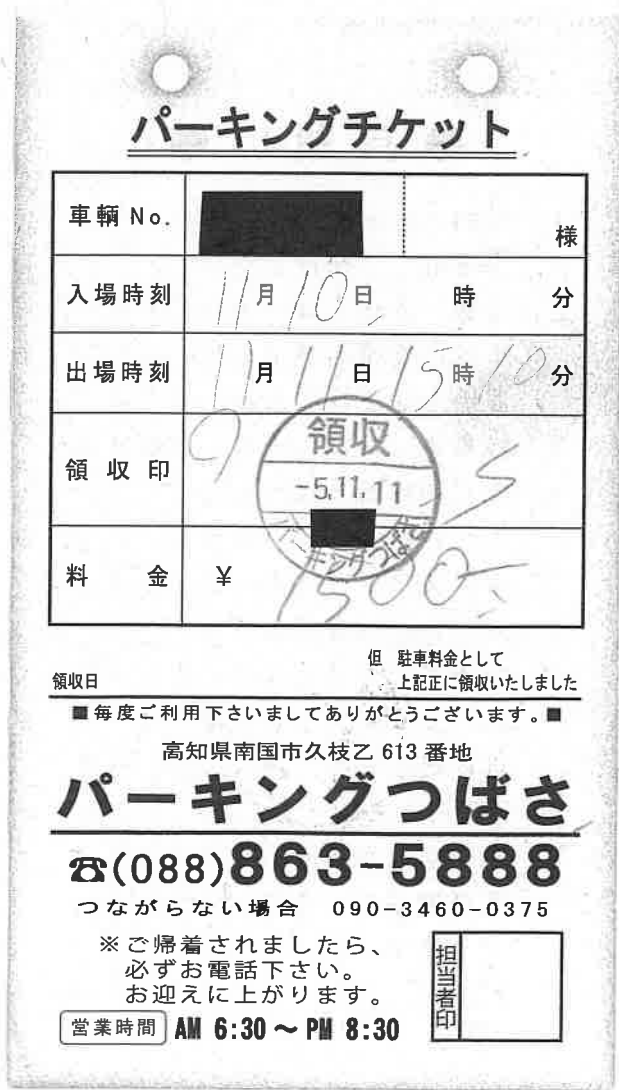 パーキングチケット
車輌 No. 様
入場時刻 11月10日 時 分
出場時刻 11月11日15時10分
領収印 9 領収 S
-5.11.11
パーキングつばさ
料金 ¥ 1500-
但 駐車料金として
領収日 上記正に領収いたしました
■毎度ご利用下さいましてありがとうございます。■
高知県南国市久枝乙 613 番地
パーキングつばさ
☎(088)863-5888
つながらない場合 090-3460-0375
※ご帰着されましたら、
必ずお電話下さい。
お迎えに上がります。
担当者印
営業時間 AM 6:30 ~ PM 8:30